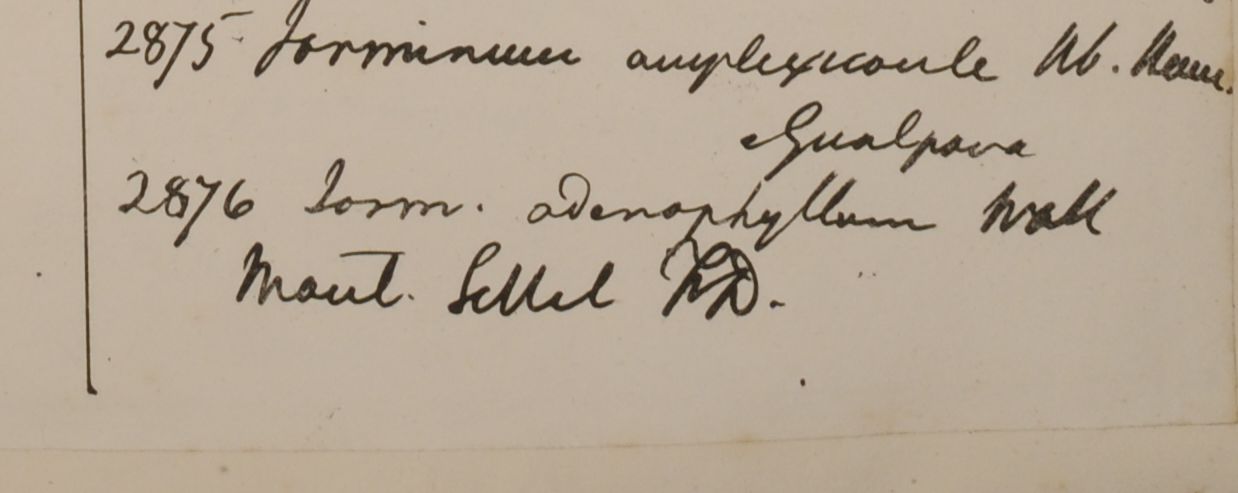 2875 Jasminum amplexicaule Hb. Ham.
Gualpara
2876 Jasm. adenophyllum Wall
Mont. Sillet FD.